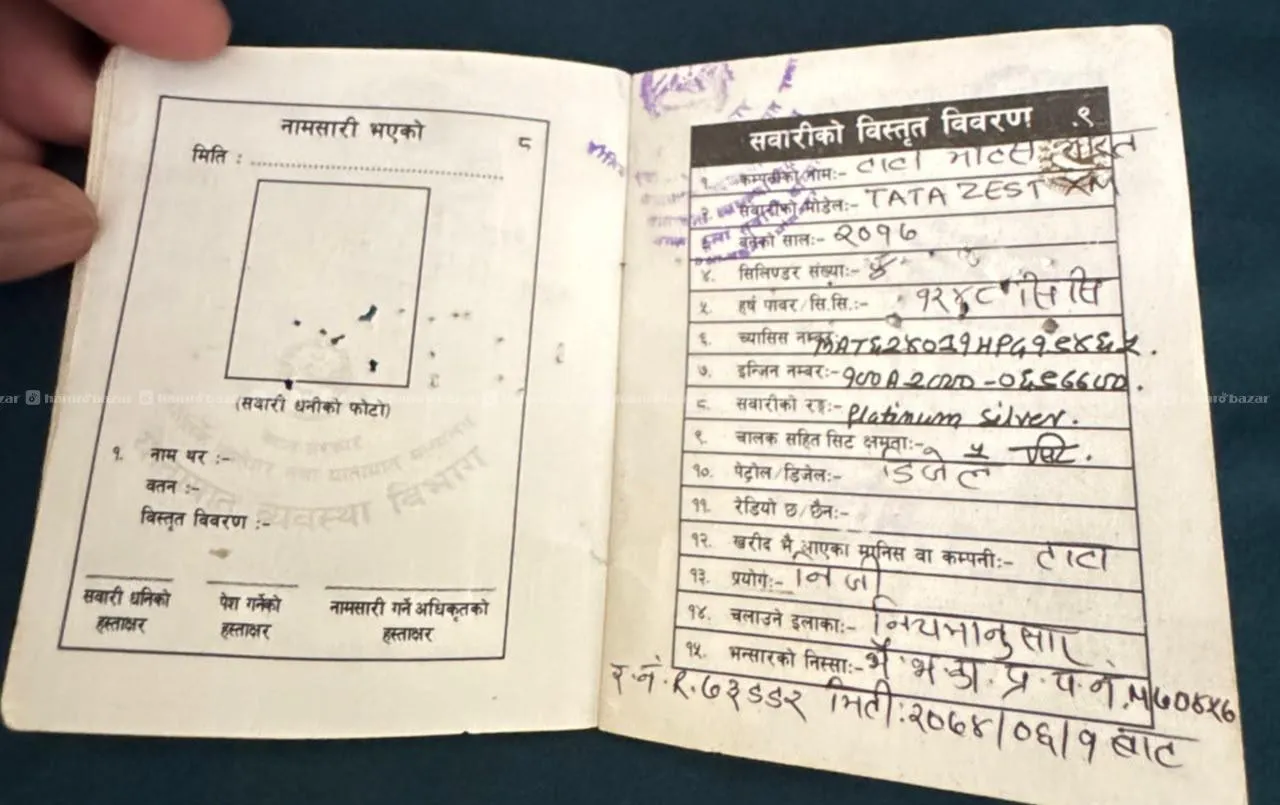 नामसारी भएको
८
मिति :
(सवारी धनीको फोटो)
१. नाम थर :-
वतन :-
विस्तृत विवरण :-
सवारी धनिको हस्ताक्षर
पेश गर्नेको हस्ताक्षर
नामसारी गर्ने अधिकृतको हस्ताक्षर
यातायात व्यवस्था विभाग
सवारीको विस्तृत विवरण .९
१. कम्पनीको नाम:- टाटा मोटर्स
२. सवारीको मोडेल:- TATA ZEST XM
बनेको साल:- २०१७
४. सिलिण्डर संख्या:- ४
५. हर्ष पावर/सि.सि.:- १२४८ सि सि
६. च्यासिस नम्बर:-
७. इन्जिन नम्बर:-
८. सवारीको रङ्ग:- Platinum silver.
९. चालक सहित सिट क्षमता:- ५ सिट.
१०. पेट्रोल/डिजेल:- डिजेल
११. रेडियो छ/छैन:-
१२. खरीद भै आएका मानिस वा कम्पनी:- टाटा
१३. प्रयोग:- निजी
१४. चलाउने इलाका:- नियमानुसार
१५. भन्सारको निस्सा:- भै. भ. का. प्र. प. नं.
र. नं. मिती: २०७४/०६/१ बाट
hamrobazar
hamrobazar